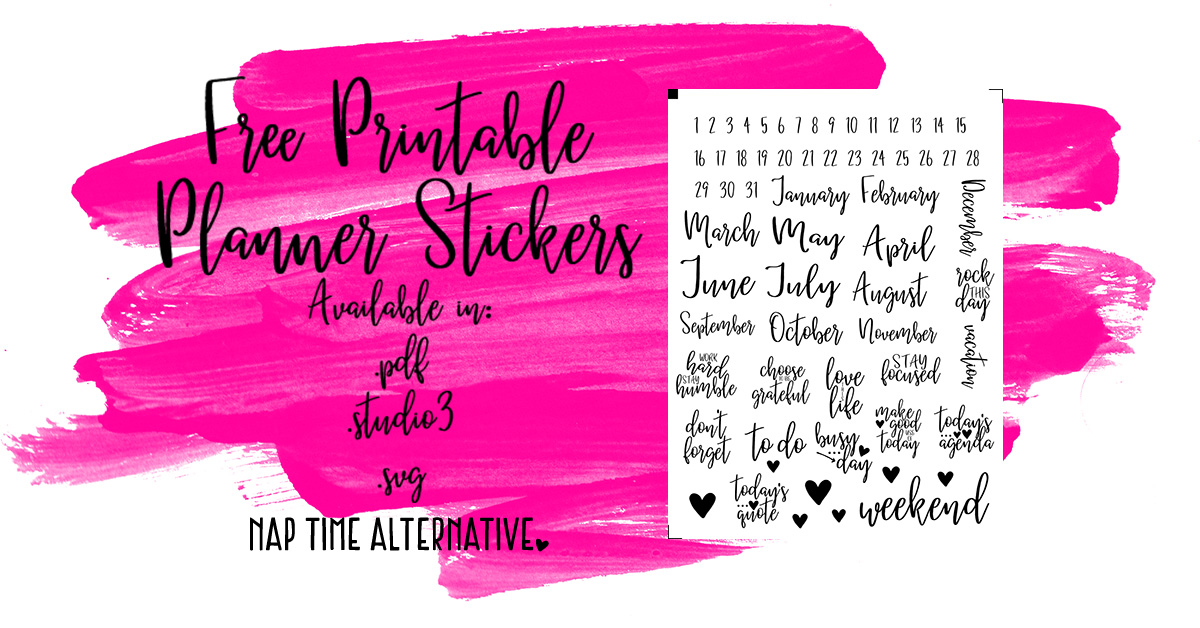 Free Printable
Planner Stickers
Available in:
.pdf
.studio3
.svg
NAP TIME ALTERNATIVE
1 2 3 4 5 6 7 8 9 10 11 12 13 14 15
16 17 18 19 20 21 22 23 24 25 26 27 28
29 30 31 January February
December
March May April
June July August
rock
THIS
day
September October November
vacation
WORK
hard
STAY
humble
choose
grateful
love
life
STAY
focused
don't
forget
to do
busy
day
make
good
today
today's
agenda
today's
quote
weekend